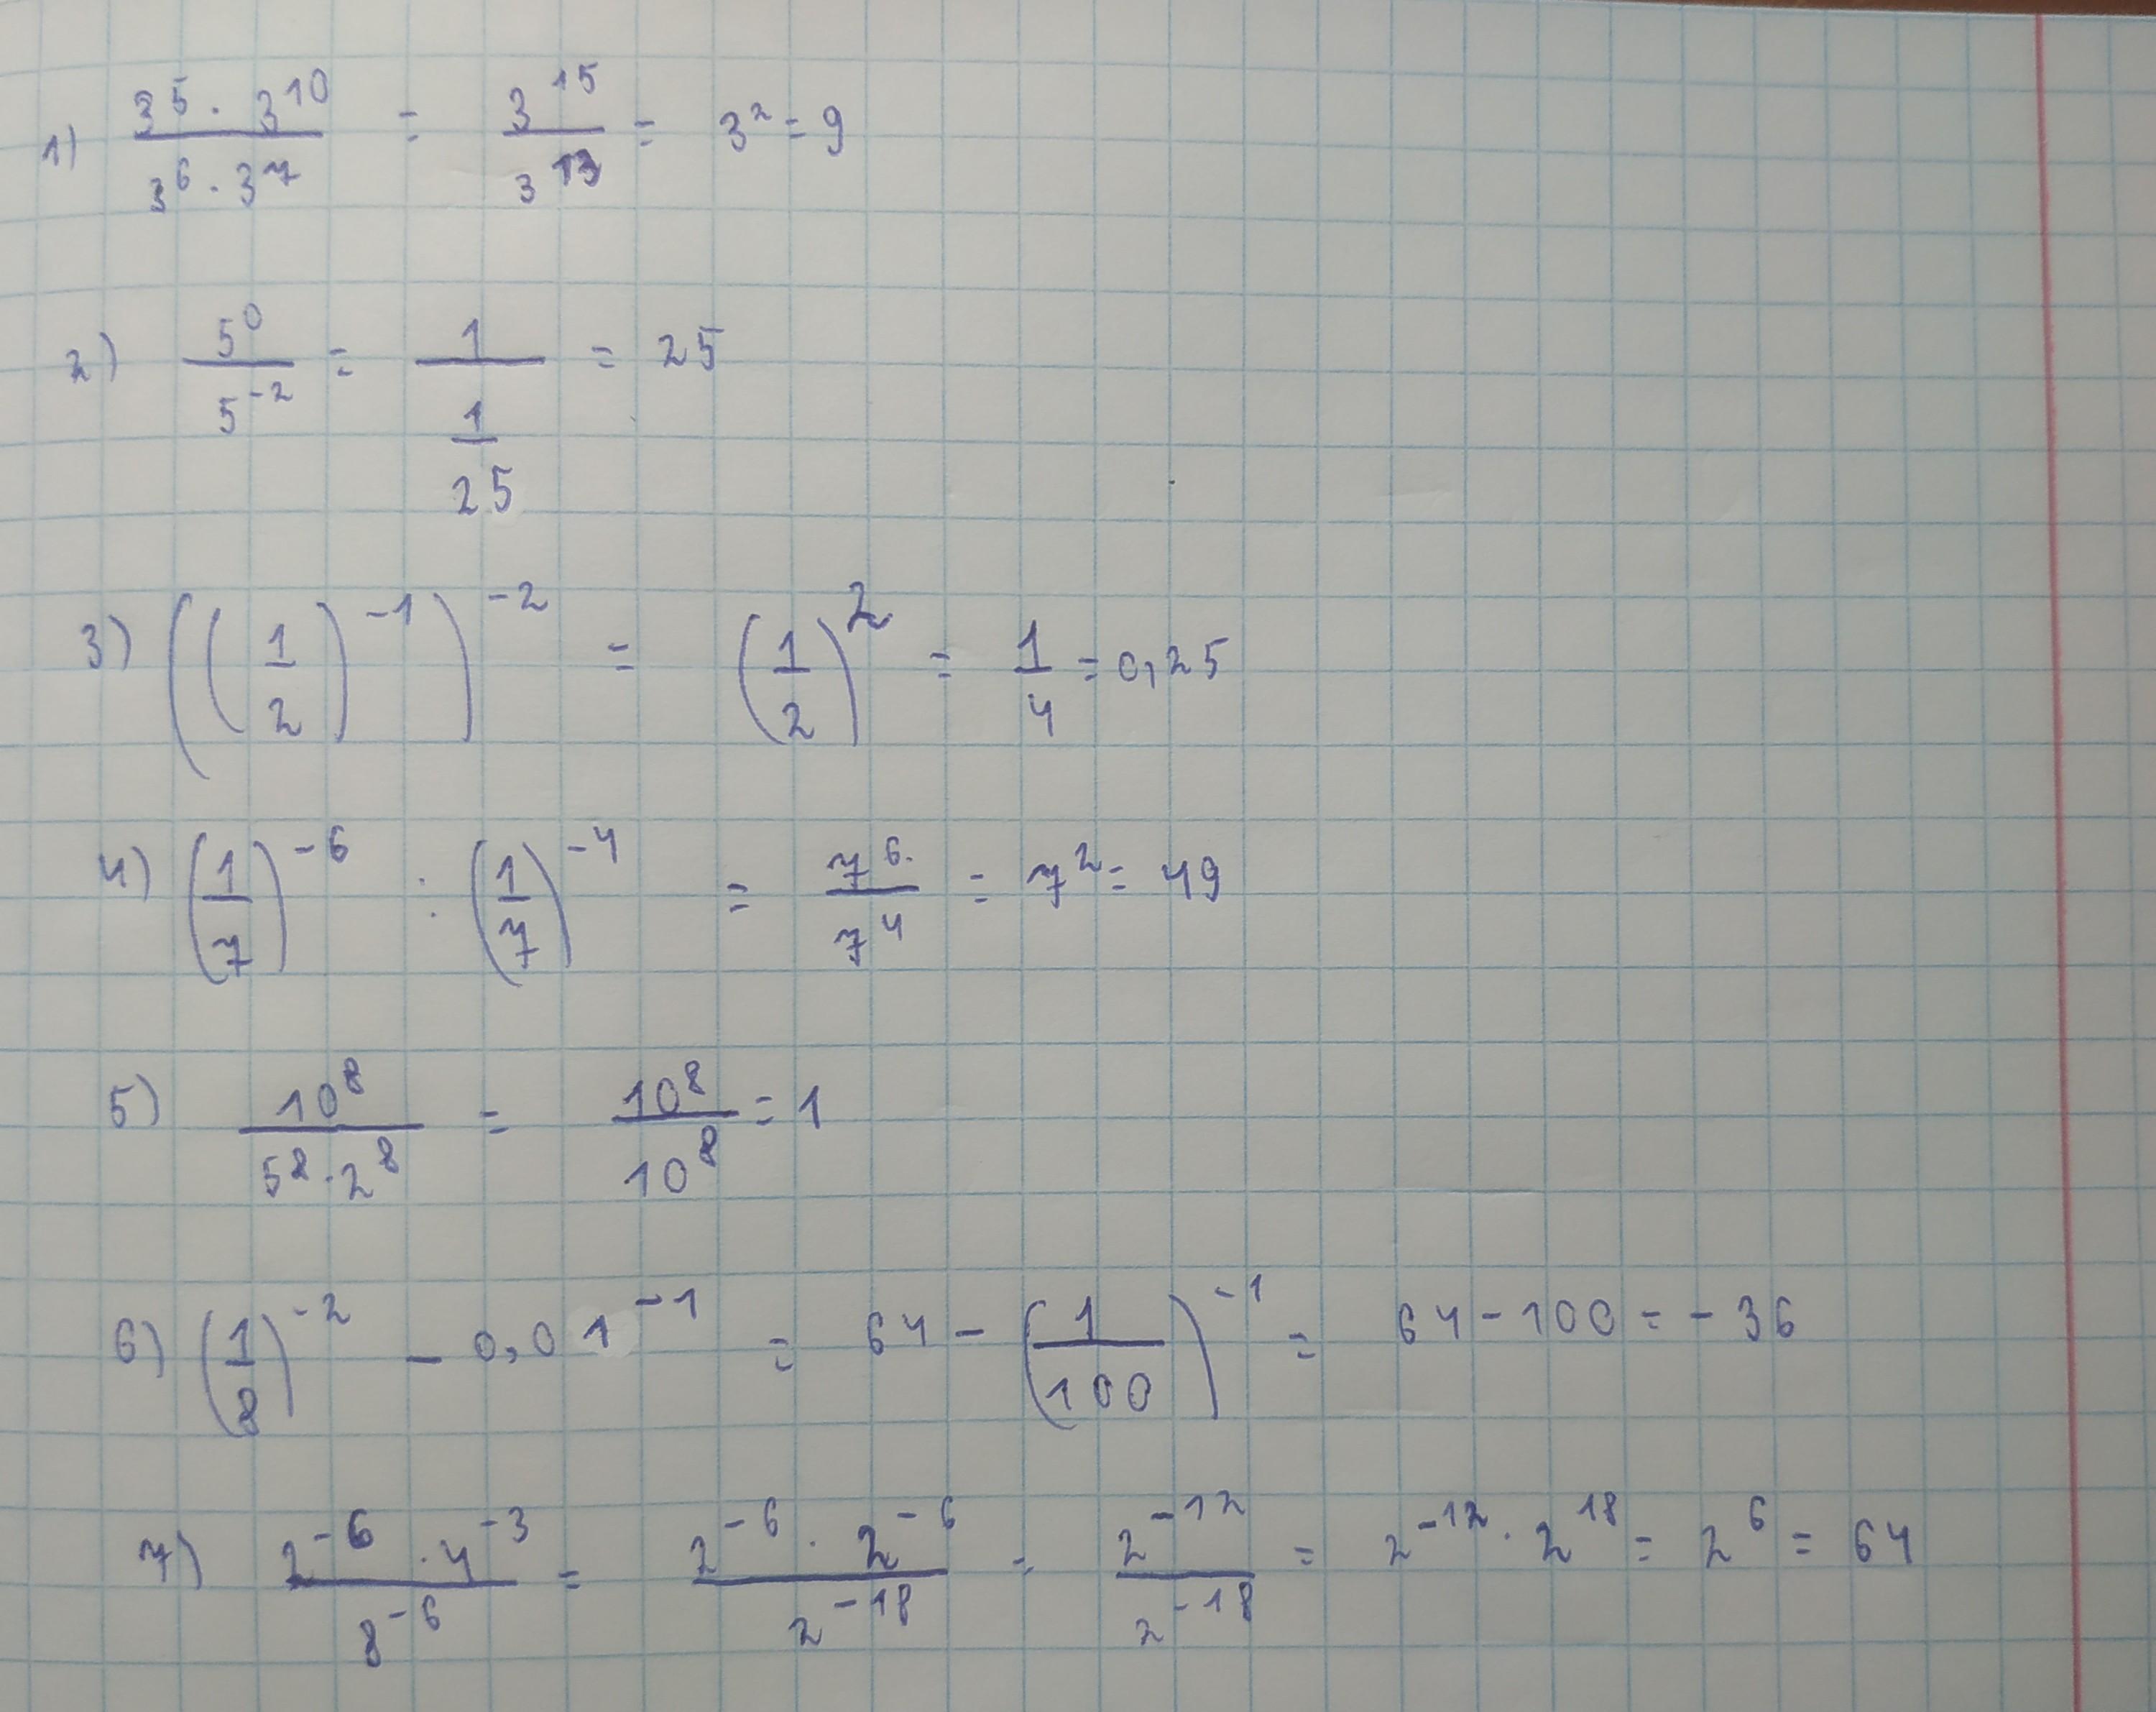 1) (3^5 · 3^10)/(3^6 · 3^7) = 3^15/3^13 = 3^2 = 9
2) 5^0/5^-2 = 1/(1/25) = 25
3) ((1/2)^-1)^-2 = (1/2)^2 = 1/4 = 0,25
4) (1/7)^-6 : (1/7)^-4 = 7^6/7^4 = 7^2 = 49
5) 10^8/(5^8 · 2^8) = 10^8/10^8 = 1
6) (1/8)^-2 - 0,01^-1 = 64 - (1/100)^-1 = 64 - 100 = -36
7) (2^-6 · 4^-3)/8^-6 = (2^-6 · 2^-6)/2^-18 = 2^-12/2^-18 = 2^-12 · 2^18 = 2^6 = 64